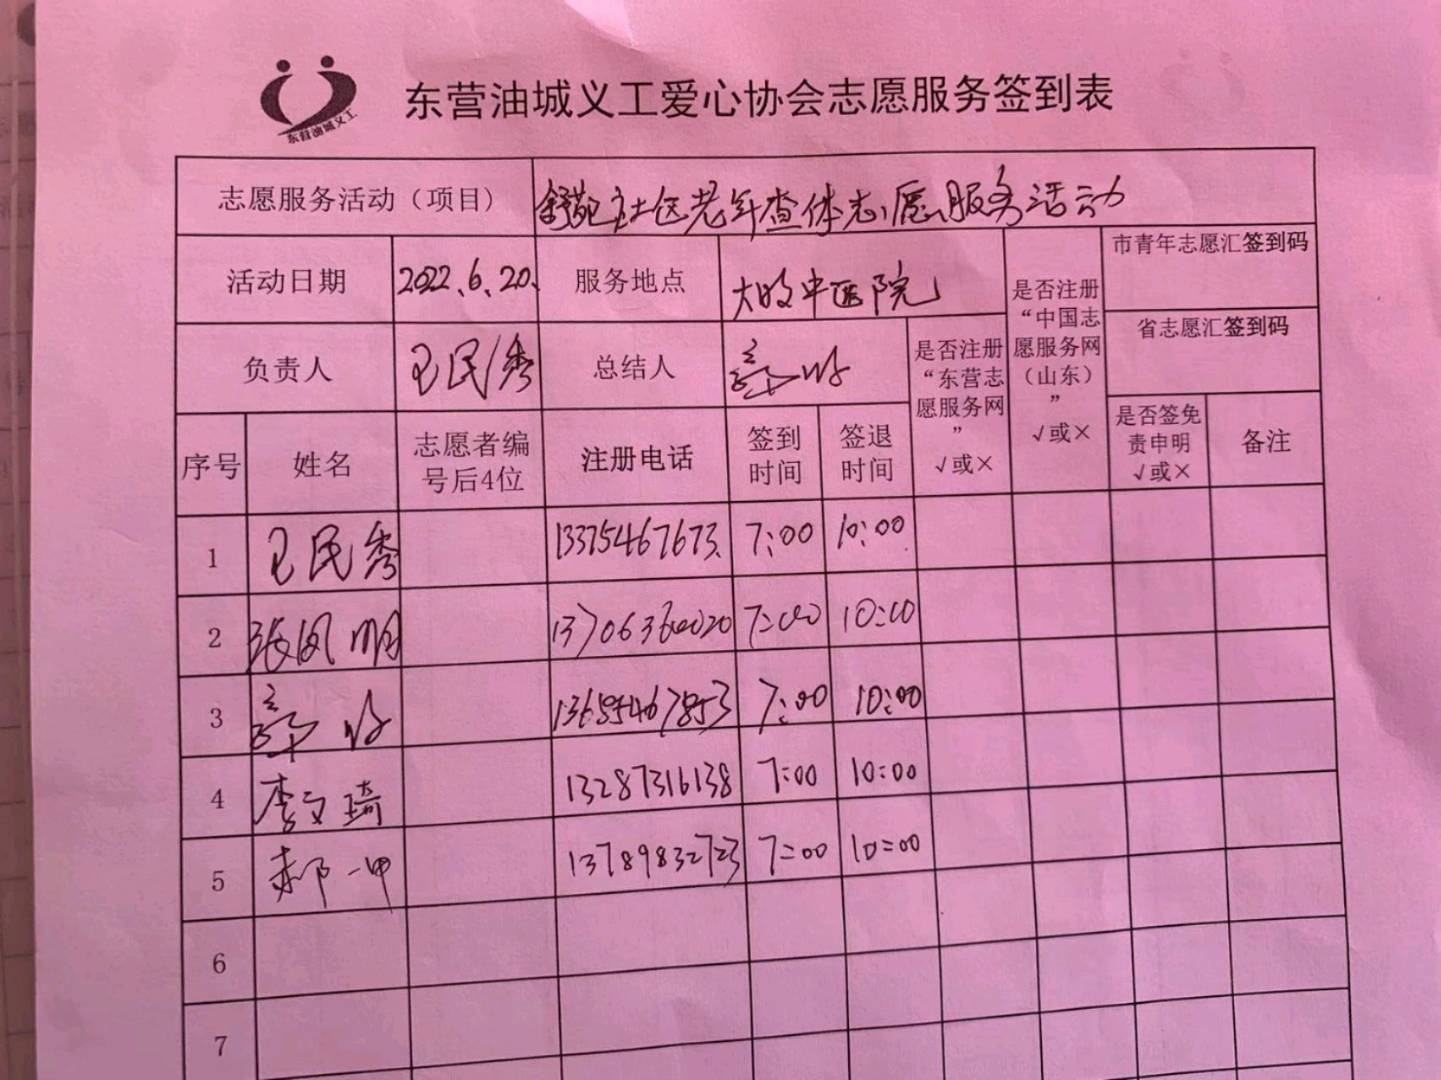 东营油城义工
东营油城义工爱心协会志愿服务签到表
志愿服务活动（项目） 舒苑社区老年查体志愿服务活动
市青年志愿汇签到码
活动日期 2022.6.20. 服务地点 中医院
是否注册“中国志愿服务网（山东）” √或×
省志愿汇签到码
负责人 王民秀 总结人
是否注册“东营志愿服务网” √或×
序号 姓名 志愿者编号后4位 注册电话 签到时间 签退时间 是否签免责申明 √或× 备注
1 王民秀 13375467673. 7:00 10:00
2 张凤明 13706360020 7:00 10:00
3 13685467853 7:00 10:00
4 李文琦 13287316138 7:00 10:00
5 郝一甲 13789832723 7:00 10:00
6
7